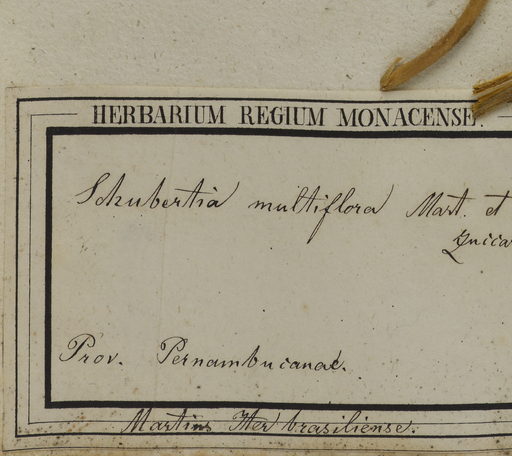 HERBARIUM REGIUM MONACENSE.
Schubertia multiflora Mart. et
Zuccar
Prov. Pernambucanae.
Martius Iter brasiliense.